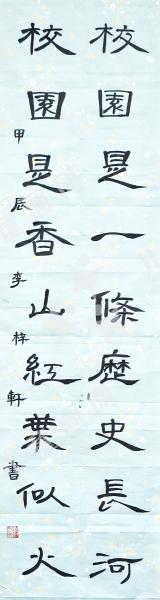 校園是一條歷史長河
校園是香山紅葉似火
甲辰李梓軒書